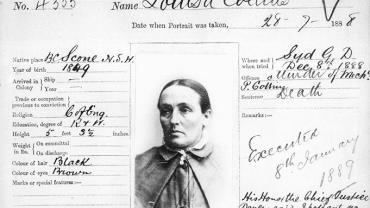 No. 4535 Name Louisa Collins
Date when Portrait was taken, 28-7-1888
Native place BC Scone N.S.W.
Year of birth 1849
Arrived in Colony Ship
Year
Trade or occupation previous to conviction
Religion C of Eng.
Education, degree of R & W
Height 5 feet 3½ inches
Weight in lbs. On committal
On discharge
Colour of hair Black
Colour of eyes Brown
Marks or special features:—
Where and when tried Syd G.D.
Dec 8th 1888
Offence Murder of Mich^l
P. Collins
Sentence Death
Remarks:—
Executed
8th January
1889
His Honor the Chief Justice